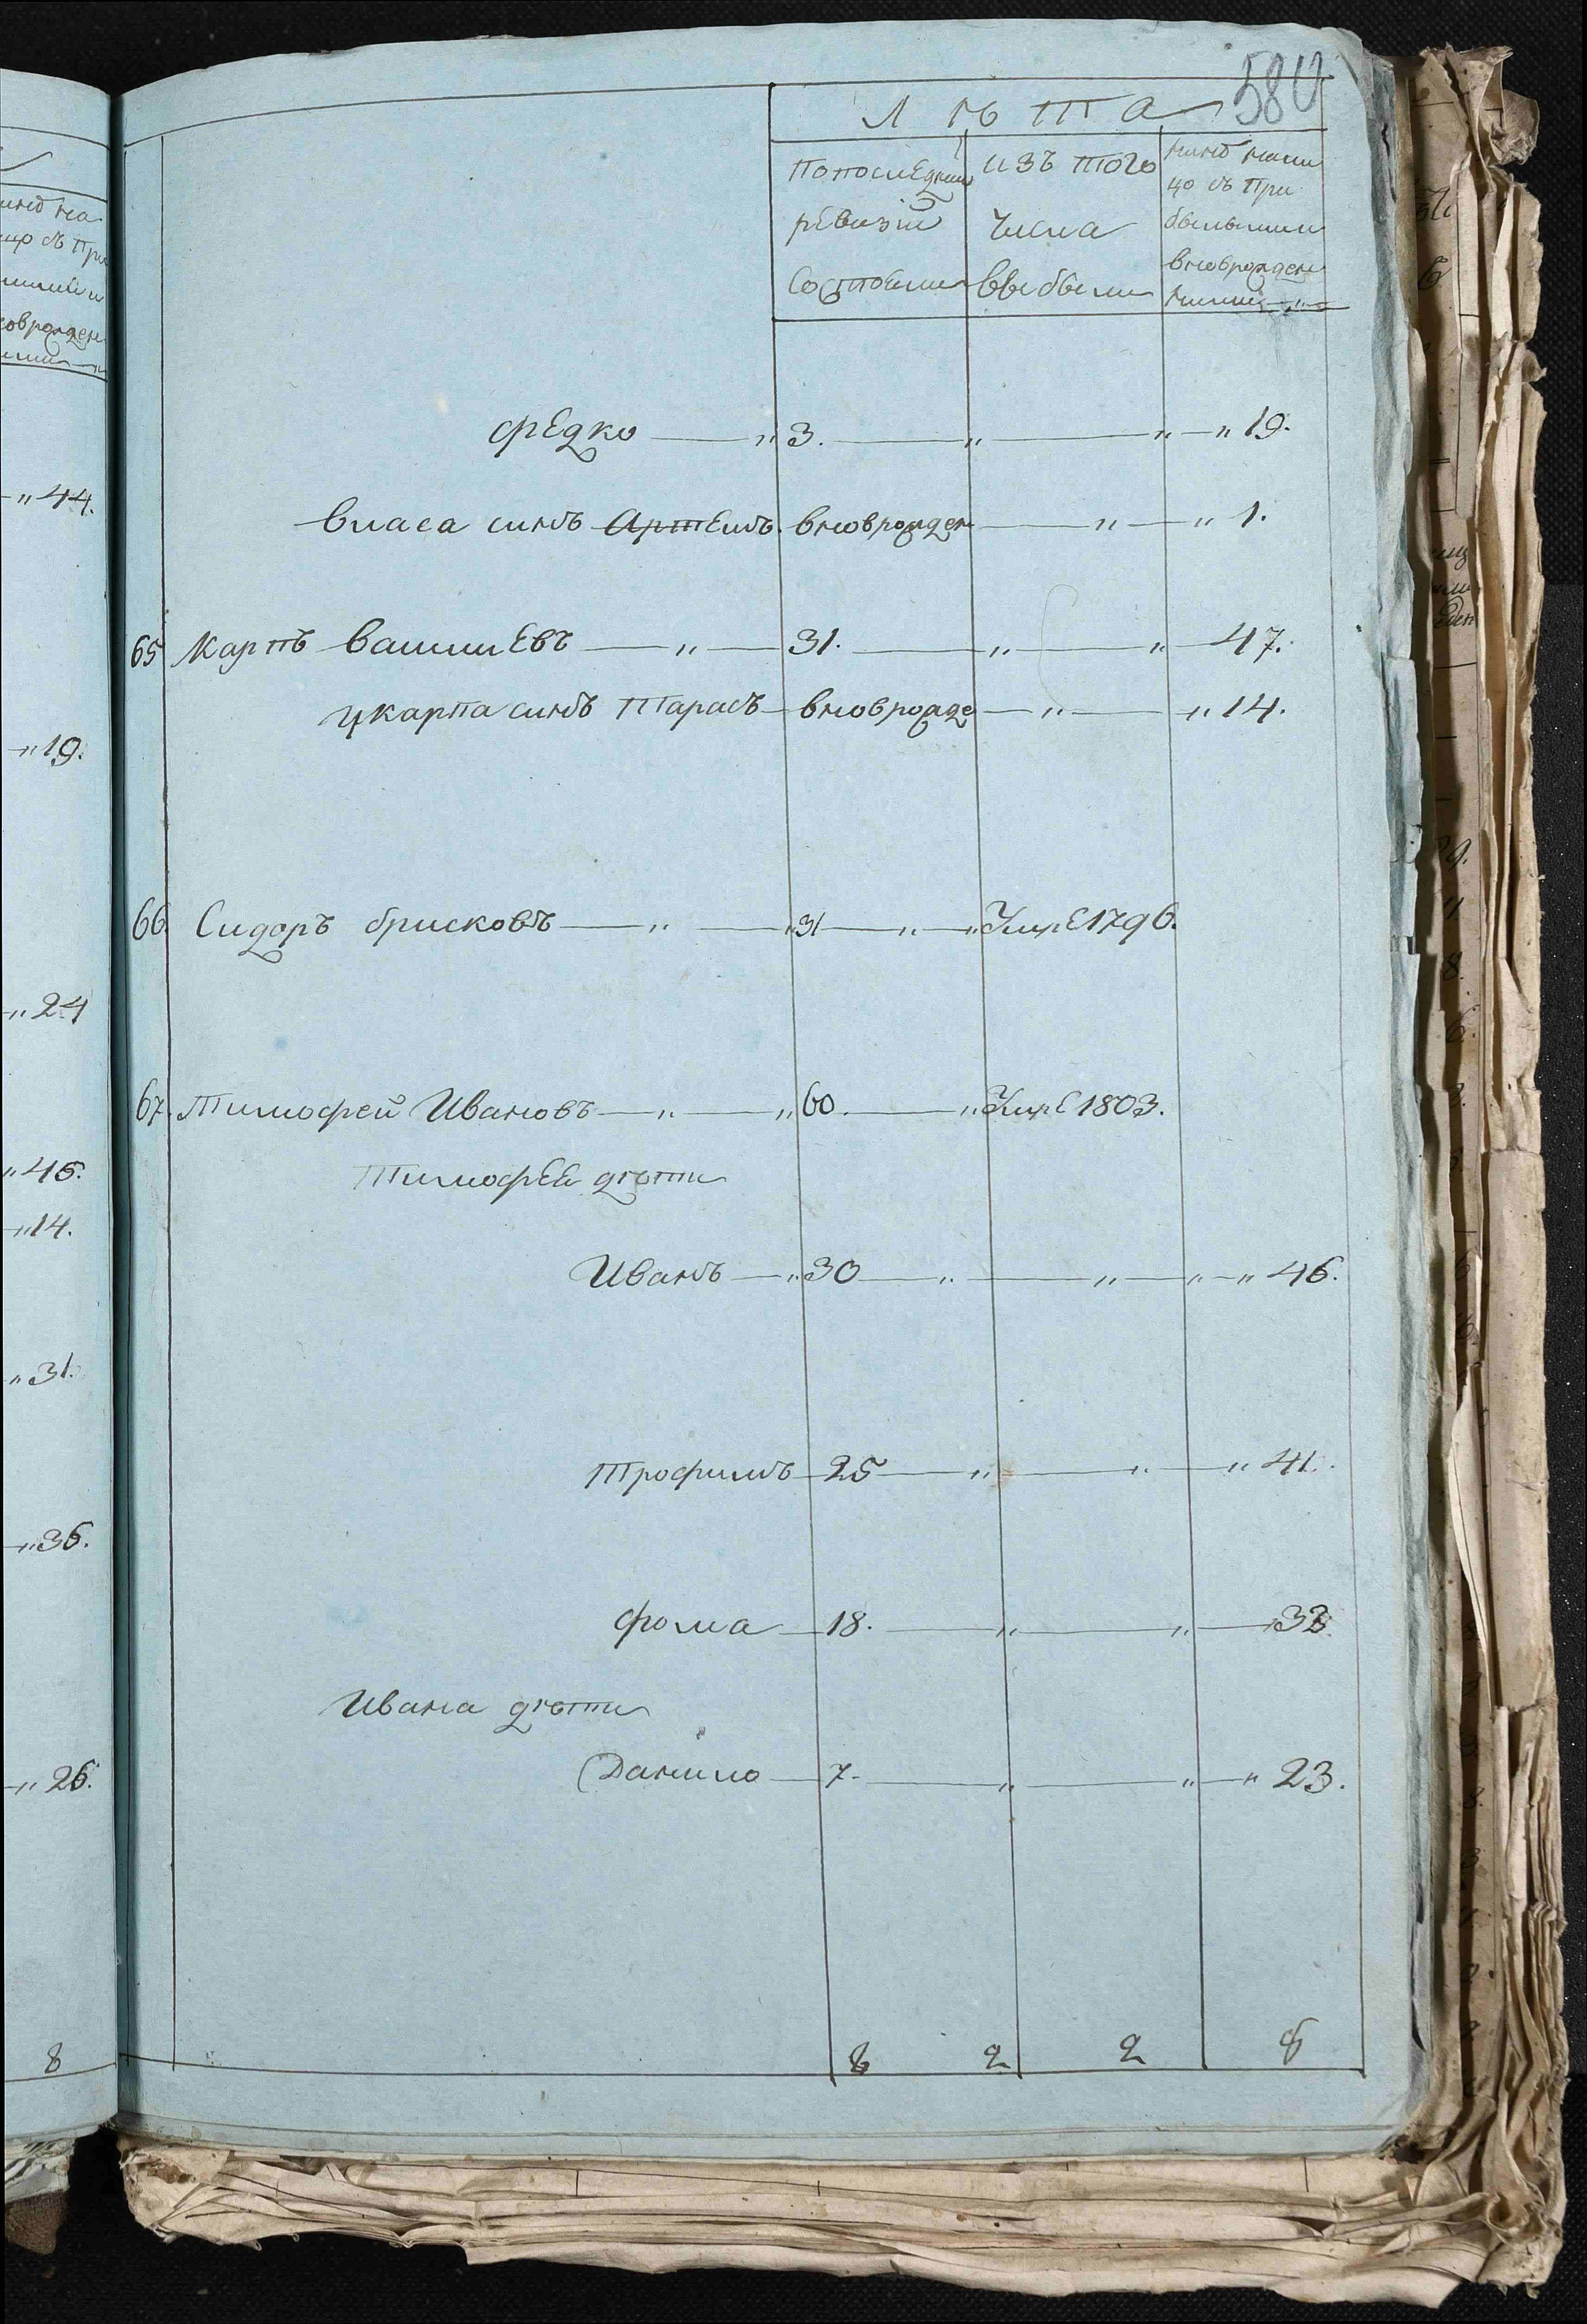 580
Лѣта
Попоследней
ревизіи
Состоели
изъ того
числа
выбыли
нынѣ нали
цо съ При
былыми
вновророжден
ными
Федко 3. 19.
власа сынъ Артемъ. вноврожден 1.
65 Карпъ Васильевъ 31. 47.
укарпа сынъ Тарасъ вноврожде 14.
66. Сидоръ брисковъ 31 Умре 1796.
67. Тимофей Ивановъ 60. Умре 1803.
Тимофея дѣти
Иванъ 30 46.
Трофимъ 25 41.
Фома 18. 33
Ивана дѣти
Данило 7. 23.
8 2 2 8
44.
19.
24
45.
14.
31.
36.
26.
8